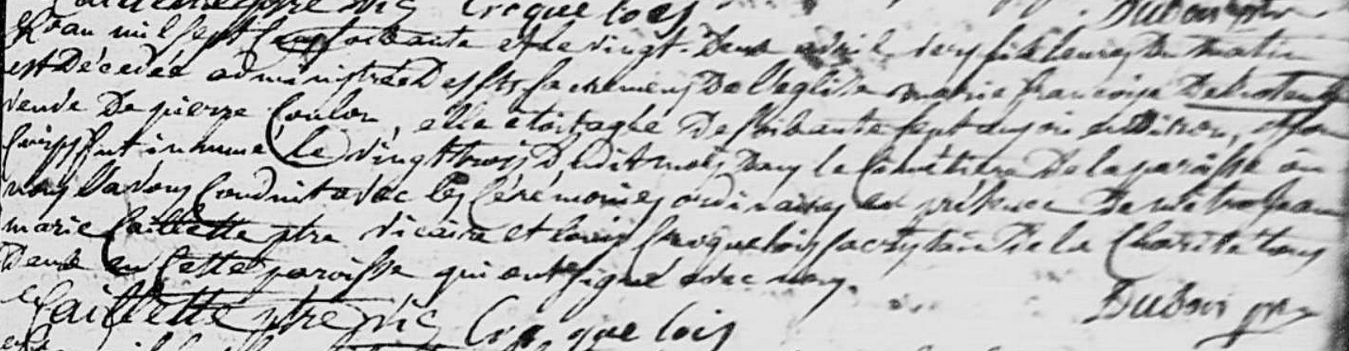 Caillette ptre vic Croquelois Dubois ptre
L'an mil sept cent soixante et le vingt deux avril vers six heures du matin
est décédée administrée des sts sacremens de l'eglise marie francoise
veuve de pierre Coulon, elle étoit agée de soixante sept ans ou environ, et son
corps fut inhumé le vingt trois dudit mois dans le Cimétiere de la paroisse où
nous l'avons Conduit avec les Cérémonies ordinaires en présence de me Jean
marie Caillette ptre vicaire et louis Croquelois sacristain de la Charité tous
deux en Cette paroisse qui ont signé avec nous.
Caillette ptre vic Croquelois Dubois ptre